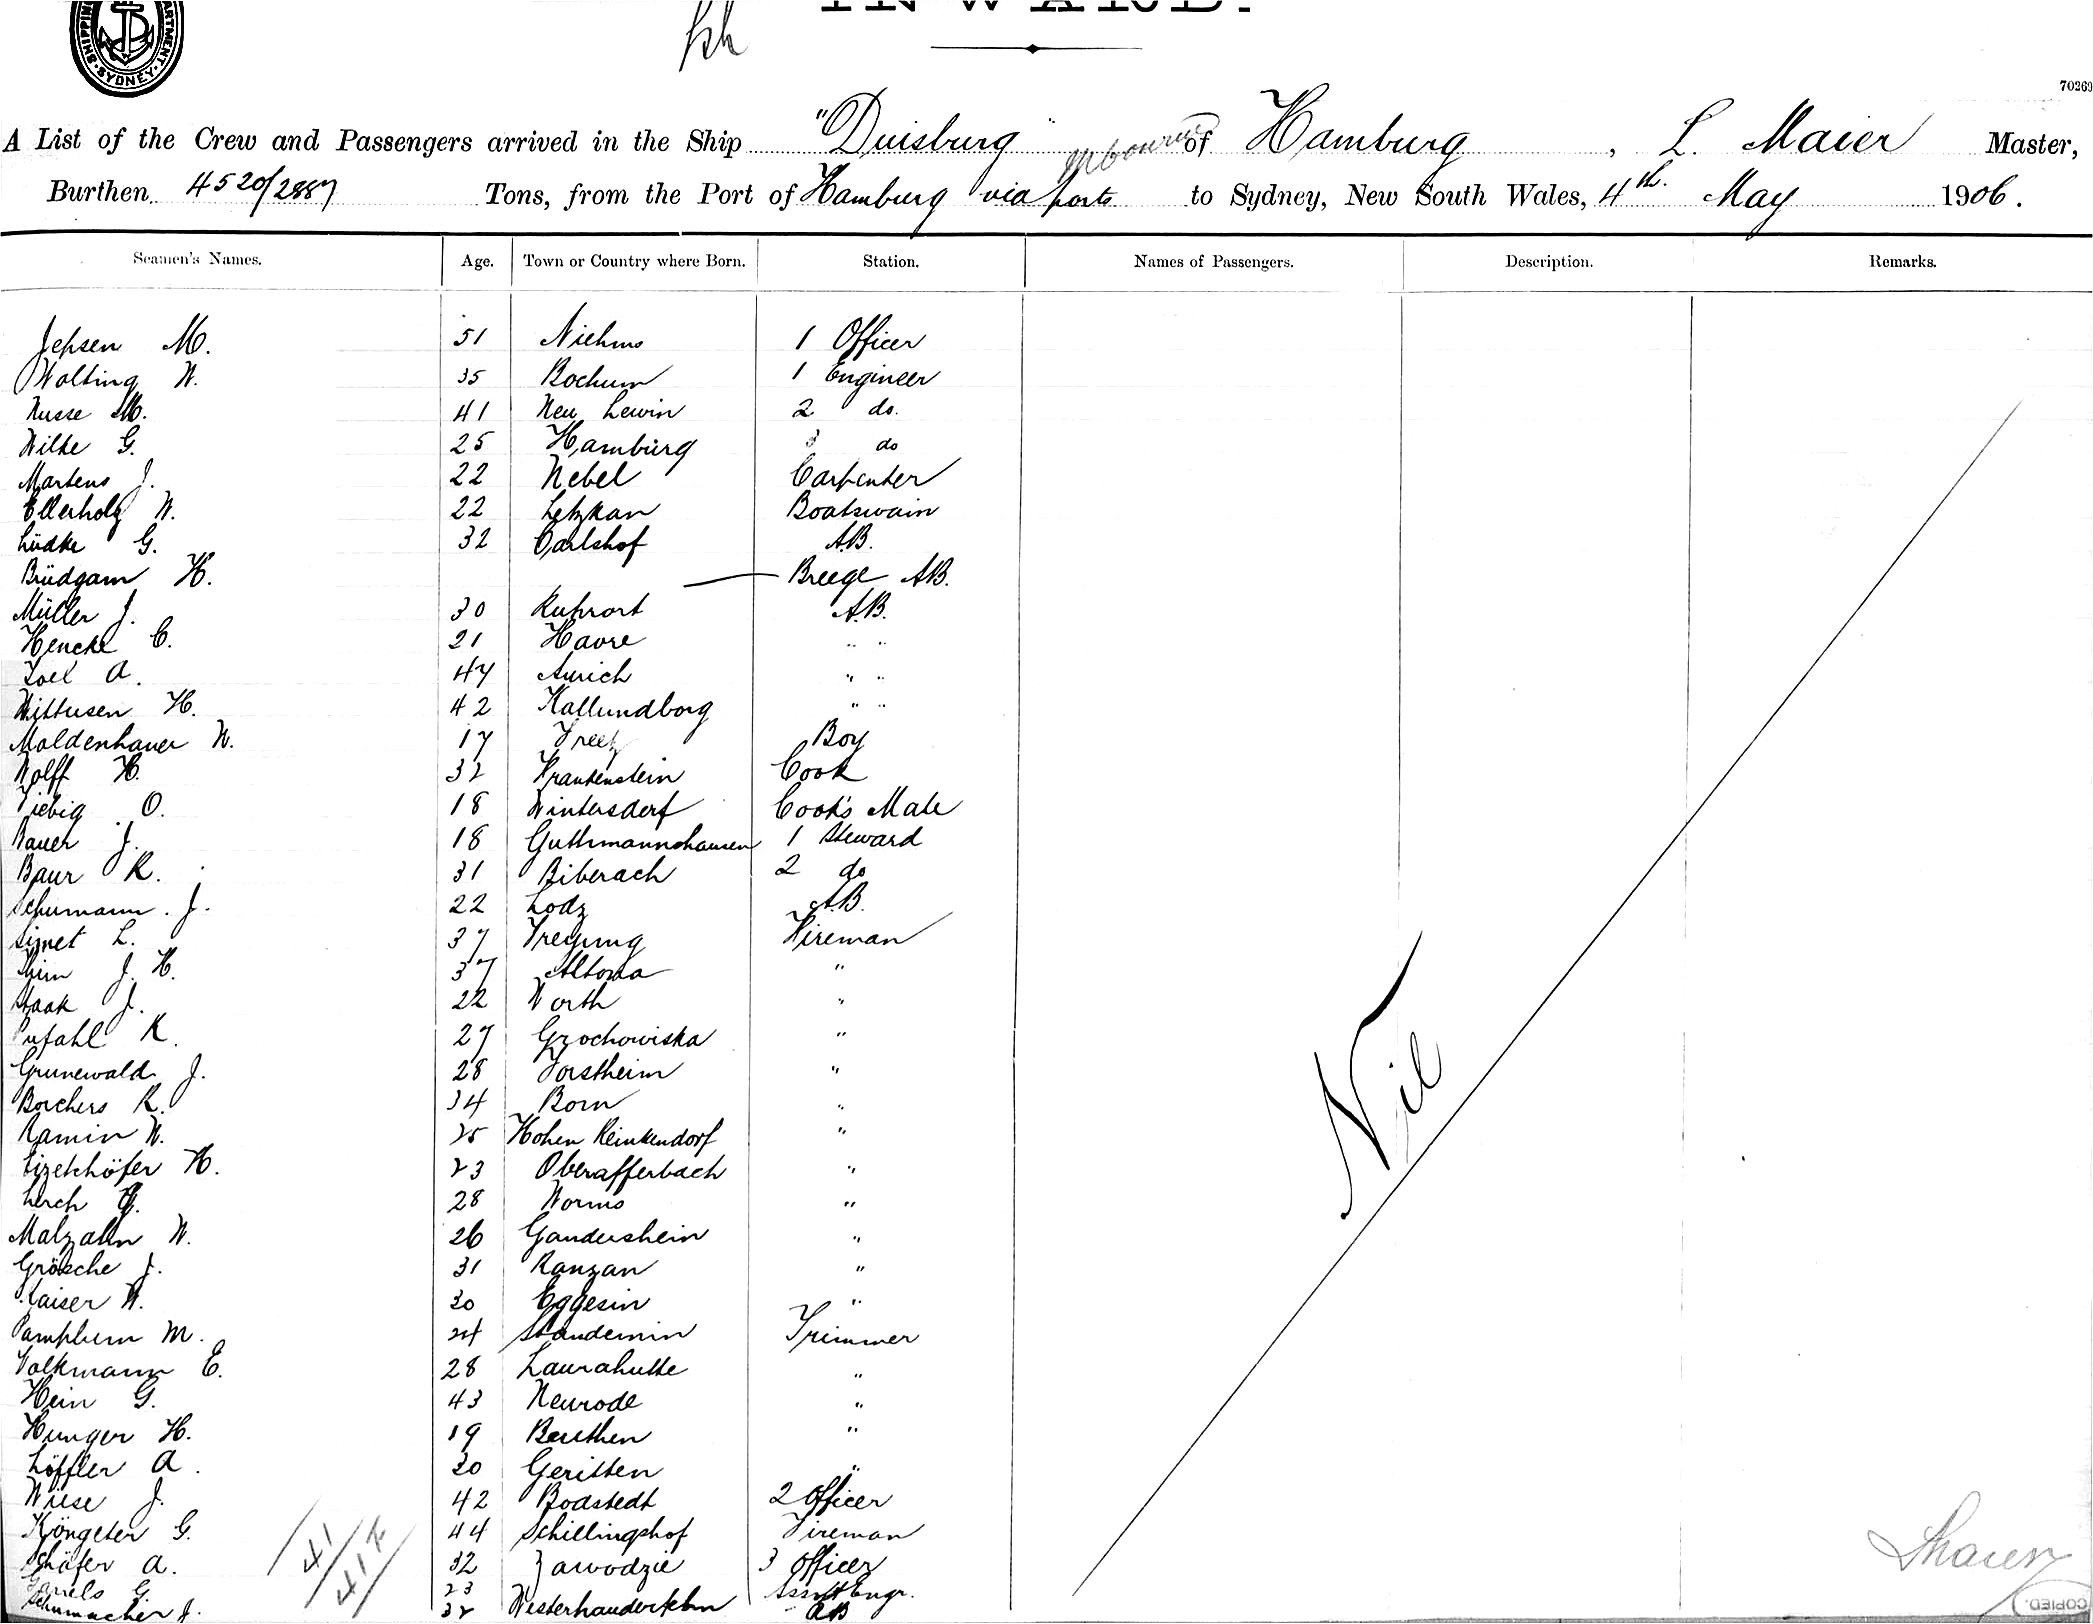 INWARD.
SHIPPING DEPARTMENT SYDNEY
70269
A List of the Crew and Passengers arrived in the Ship "Duisburg" of Hamburg, L. Maier Master,
Burthen 4520/2887 Tons, from the Port of Hamburg via ports to Sydney, New South Wales, 4th. May 1906.
Seamen's Names. Age. Town or Country where Born. Station. Names of Passengers. Description. Remarks.
Jepsen M. 51 1 Officer
Wolting W. 35 Bochum 1 Engineer
Nusse M. 41 Neu Lewin 2 do.
Wilke G. 25 Hamburg 3 do
Martens J. 22 Nebel Carpenter
Ellerholz W. 22 Letzkau Boatswain
Lüdke G. 32 Carlshof A.B.
Brüdgam H. — Breege AB.
Müller J. 30 Ruhrort A.B.
Hencke C. 21 Havre " "
Joel A. 47 Aurich " "
Wittusen H. 42 Kallundborg " "
Moldenhauer W. 17 Preetz Boy
Wolff H. 32 Frankenstein Cook
Viebig O. 18 Wintersdorf Cook's Mate
Bauer J. 18 Guthmannshausen 1 Steward
Baur K. 31 Biberach 2 do
Schumann. J. 22 Lodz A.B.
L. 37 Freyung Fireman
J. H. 37 Altona "
Staak J. 22 Worth "
Pufahl K. 27 Grochowiska "
Grunewald J. 28 Forstheim "
Borchers R. 34 Born "
Ramin W. 25 Hohen Reinkendorf "
H. 23 Oberafferbach "
Lerch G. 28 Worms "
Malzahn W. 26 Gandershein "
Grösche J. 31 Ranzau "
Kaiser W. 30 Eggesin "
M. 24 Standemin Trimmer
Volkmann E. 28 Laurahutte "
Hein G. 43 Neurode "
Hunger H. 19 Beuthen "
Löffler A. 30 Geritten "
Wiese J. 42 Bodstedt 2 Officer
Köngeter G. 44 Schillingshof Fireman
Schäfer A. 32 Zawodzie 3 Officer
G. 23 Assist Engr.
Schumacher J. 32 AB
Nil
41
COPIED.